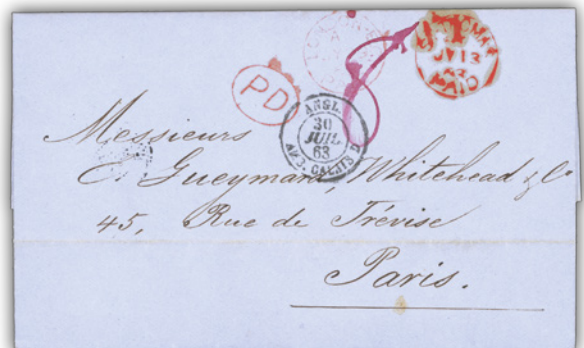 PD
ANGL.
30
JUIL
63
AMB. CALAIS D
PAID
Messieurs
C. Gueymard, Whitehead & Co
45, Rue de Trévise
Paris.